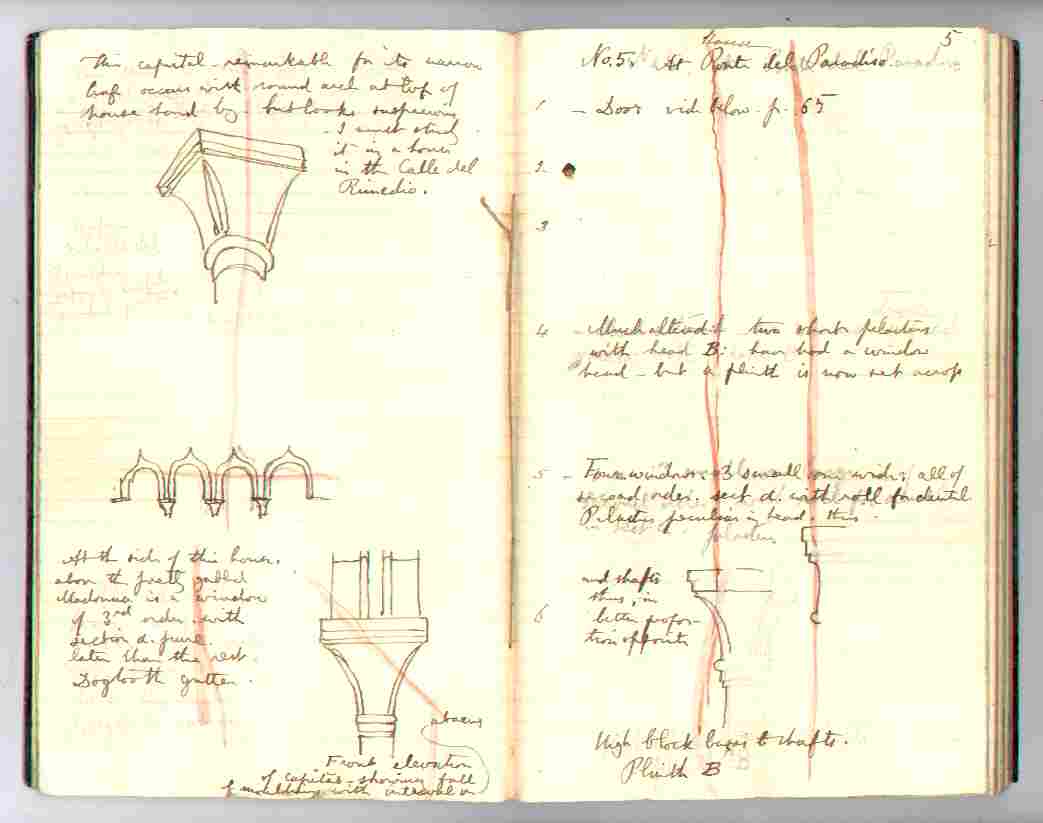 This capital remarkable for its narrow
leaf occurs with round arch at top of
house hard by - but looks suspicious
- I must study
it in a house
in the Calle del
Rimedio.
At the side of this house.
above the pretty gabled
Madonna is a window
of 3rd order with
section d. pure.
later than the rest.
Dogtooth gutter.
abacus
Front elevation
of capital - showing fall
of moulding with interval on
5
House
No. 5. At Ponte del Paradiso
1 - Door vid. below. p. 65
2
3
4 - Much altered: two short pilasters
with head B: have had a window
head - but a plinth is now set across
5 - Four windows: 3 small one wide; all of
second order. sect d. with roll for dentil
Pilasters peculiar in head. thus.
pilasters
and shafts
thus; in
6 better propor-
tion of points
High block bases to shafts.
Plinth B